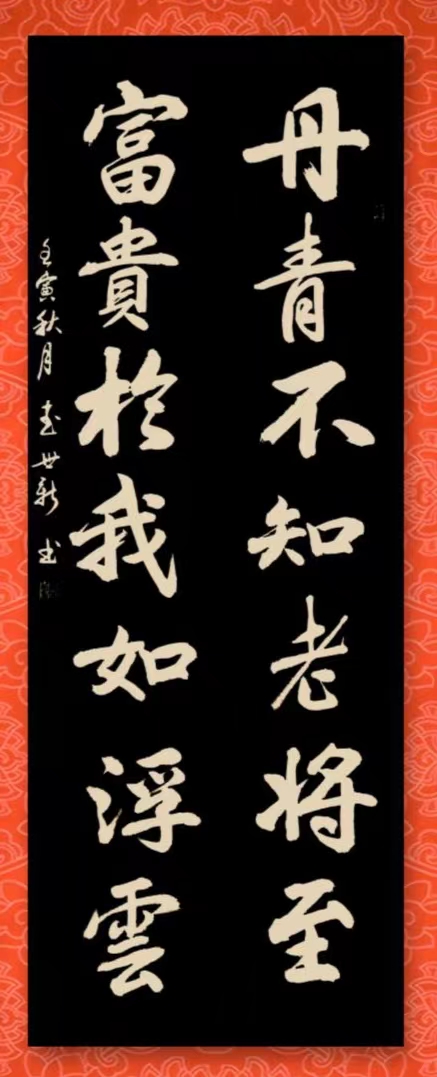 丹青不知老将至
富貴於我如浮雲
壬寅秋月 世新 书